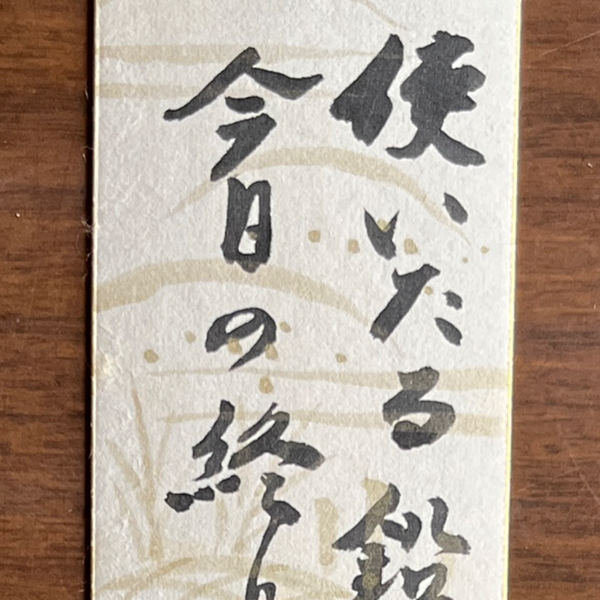 使いたる鉛
今日の終り